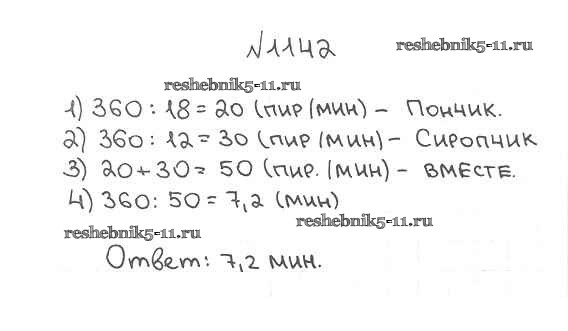 №1142
reshebnik5-11.ru
reshebnik5-11.ru
1) 360 : 18 = 20 (пир/мин) - Пончик.
2) 360 : 12 = 30 (пир/мин) - Сиропчик
3) 20 + 30 = 50 (пир./мин) - вместе.
4) 360 : 50 = 7,2 (мин)
reshebnik5-11.ru
reshebnik5-11.ru
Ответ: 7,2 мин.